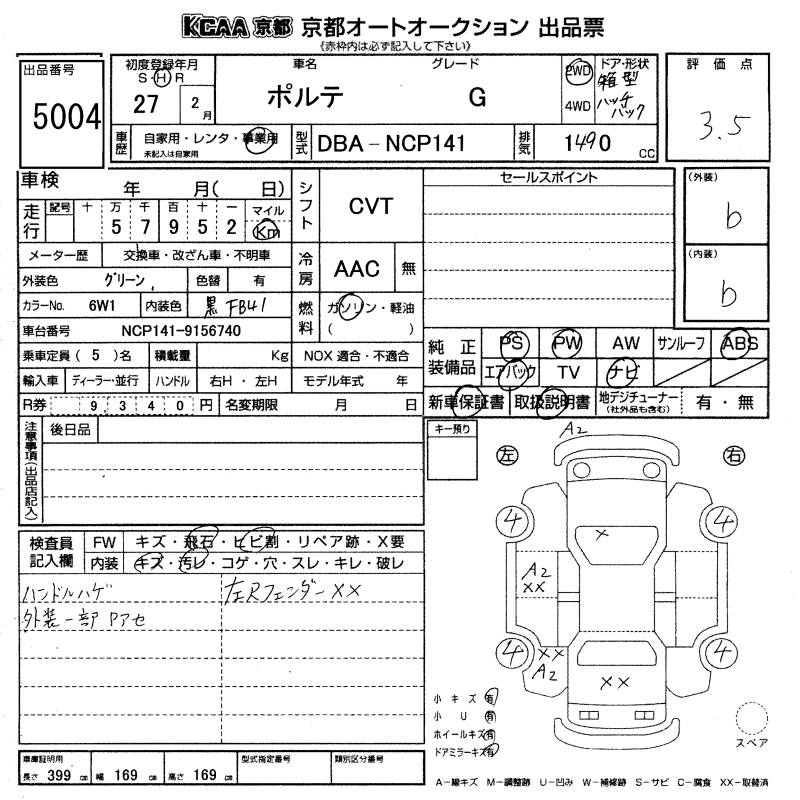 KCAA 京都 京都オートオークション 出品票
《赤枠内は必ず記入して下さい》
出品番号
5004
初度登録年月
S・H R
27 2月
車名 グレード
ポルテ G
2WD
4WD
ドア・形状
箱型
ハッチ
バック
評価点
3.5
車歴 自家用・レンタ・事業用
未記入は自家用
型式 DBA-NCP141
排気 1490 CC
車検 年 月( 日)
走行 記号 十 万 千 百 十 一 マイル
5 7 9 5 2 Km
メーター歴 交換車・改ざん車・不明車
外装色 グリーン 色替 有
カラーNo. 6W1 内装色 黒 FB41
車台番号 NCP141-9156740
乗車定員 ( 5 )名 積載量 Kg NOX 適合・不適合
輸入車 ディーラー・並行 ハンドル 右H・左H モデル年式 年
R券 9 3 4 0 円 名変期限 月 日
シフト CVT
冷房 AAC 無
燃料 ガソリン・軽油
( )
セールスポイント
(外装)
b
(内装)
b
純正装備品 PS PW AW サンルーフ ABS
エアバック TV ナビ
新車保証書 取扱説明書 地デジチューナー(社外品も含む) 有・無
注意事項(出品店記入)
後日品
キー預り
A2
左 右
4 4
×
A2
××
4 4
××
A2
××
検査員記入欄 FW キズ・飛石・ヒビ割・リペア跡・X要
内装 キズ・汚レ・コゲ・穴・スレ・キレ・破レ
ハンドルハゲ 左Rフェンダー××
外装一部 Pアセ
小キズ 有
小U 有
ホイールキズ 有
ドアミラーキズ 有
スペア
車庫証明用
長さ 399 cm 幅 169 cm 高さ 169 cm
型式指定番号 類別区分番号
A-線キズ M-調整跡 U-凹み W-補修跡 S-サビ C-腐食 XX-取替済